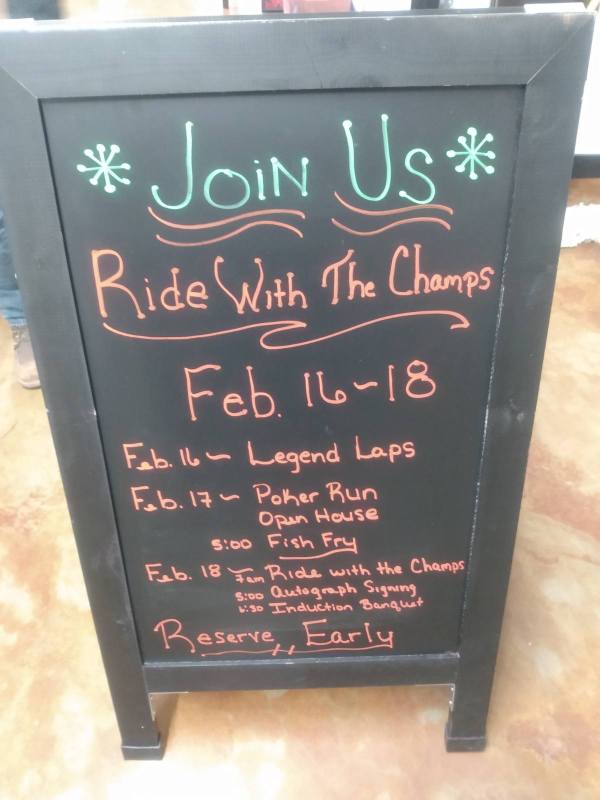 * Join Us *
Ride With The Champs
Feb. 16~18
Feb. 16~ Legend Laps
Feb. 17~ Poker Run
Open House
5:00 Fish Fry
Feb. 18~ 7am Ride with the Champs
5:00 Autograph Signing
6:30 Induction Banquet
Reserve Early